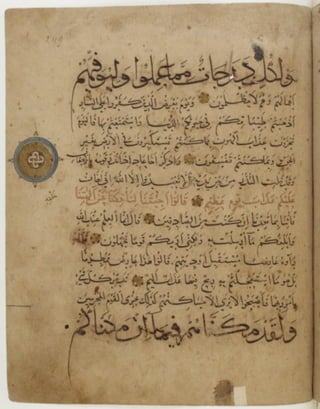 ولكل درجات مما عملوا وليوفيهم
أعمالهم وهم لا يظلمون ويوم يعرض الذين كفروا على النار
أذهبتم طيباتكم في حياتكم الدنيا واستمتعتم بها فاليوم
تجزون عذاب الهون بما كنتم تستكبرون في الأرض بغير
الحق وبما كنتم تفسقون واذكر أخا عاد إذ أنذر قومه بالأحقاف
وقد خلت النذر من بين يديه ومن خلفه ألا تعبدوا إلا الله إني أخاف
عليكم عذاب يوم عظيم قالوا أجئتنا لتأفكنا عن آلهتنا
فأتنا بما تعدنا إن كنت من الصادقين قال إنما العلم عند الله
وأبلغكم ما أرسلت به ولكني أراكم قوما تجهلون فلما
رأوه عارضا مستقبل أوديتهم قالوا هذا عارض ممطرنا
بل هو ما استعجلتم به ريح فيها عذاب أليم تدمر كل شيء
بأمر ربها فأصبحوا لا يرى إلا مساكنهم كذلك نجزي القوم المجرمين
ولقد مكناهم فيما إن مكناكم